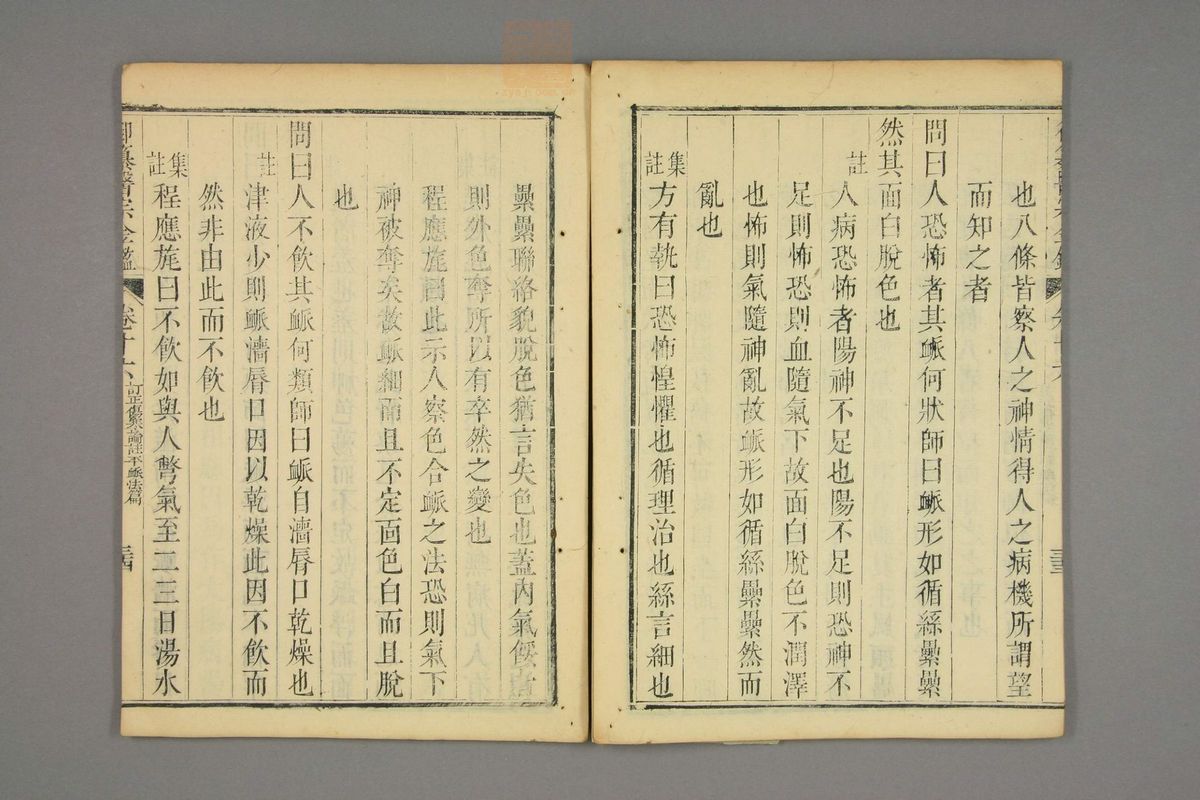 也八條皆察人之神情得人之病機所謂望
而知之者
問曰人恐怖者其脈何狀師曰脈形如循絲纍纍
然其面白脫色也
註
人病恐怖者陽神不足也陽不足則恐神不
足則怖恐則血隨氣下故面白脫色不潤澤
也怖則氣隨神亂故脈形如循絲纍纍然而
亂也
集註
方有執曰恐怖惶懼也循理治也絲言細也
纍纍聯絡貌脫色猶言失色也蓋內氣餒
則外色奪所以有卒然之變也
程應旄曰此示人察色合脈之法恐則氣下
神被奪矣故脈細而且不定面色白而且脫
也
問曰人不飲其脈何類師曰脈自濇脣口乾燥也
註
津液少則脈濇脣口因以乾燥此因不飲而
然非由此而不飲也
集註
程應旄曰不飲如與人彆氣至二三日湯水
御纂醫宗金鑑
訂正傷寒論註平脈法篇